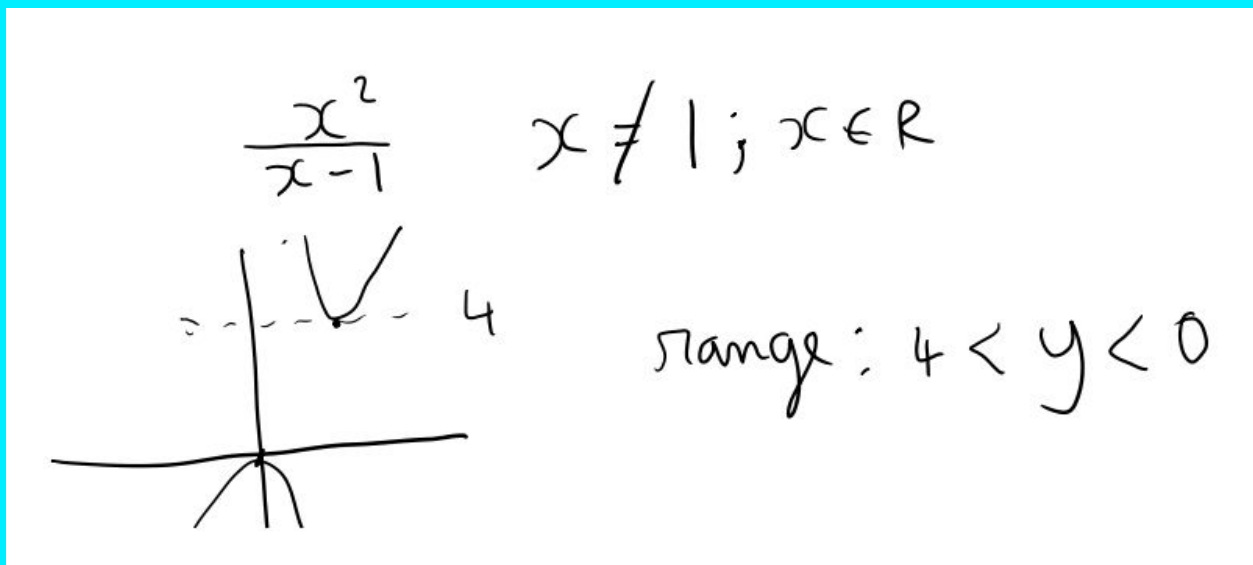 x²/(x-1) x ≠ 1; x ∈ R
4
range: 4 < y < 0